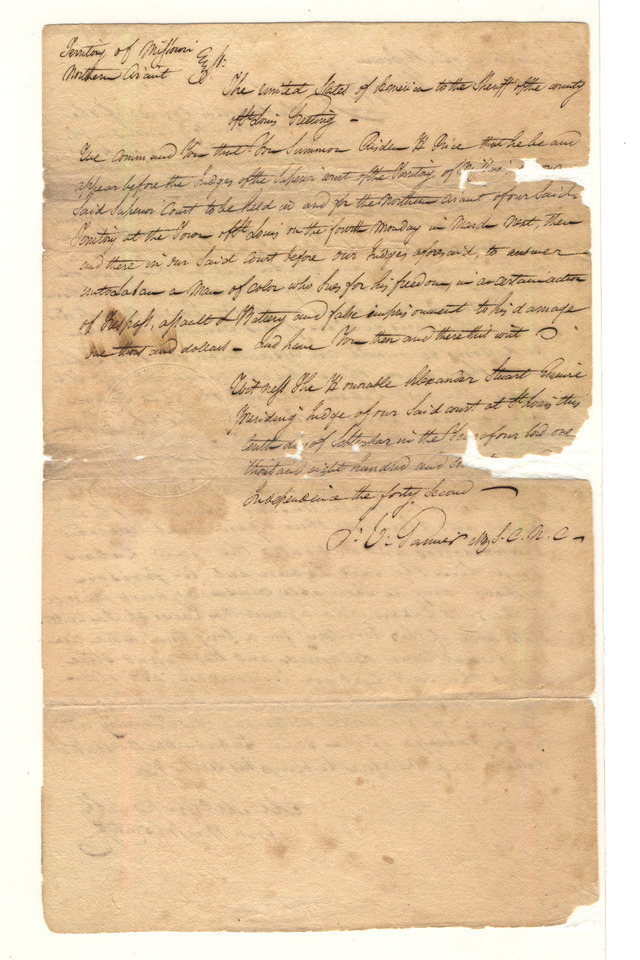 Territory of Missouri
Northern Circuit } Sct.
The United States of America to the Sheriff of the county
of St Louis Greeting —
We command You that You Summon Risdon H Price that he be and
appear before the Judges of the Superior court of the Territory of Missouri
Said Superior Court to be held in and for the Northern Circuit of our Said
Territory at the Town of St Louis on the fourth Monday in March Next, then
and there in our Said Court before our Judges aforesaid, to answer
unto Laban a Man of Color who Sues for his freedom, in a certain action
of Trespass, assault & Battery and false imprisonment to his damage
one thousand dollars — and have You then and there this writ
Witness The Honourable Alexander Stuart Esquire
Presiding Judge of our Said court at St Louis this
tenth day of September in the Year of our lord one
thousand eight hundred and
Independence the forty Second —
S.C.N.C —